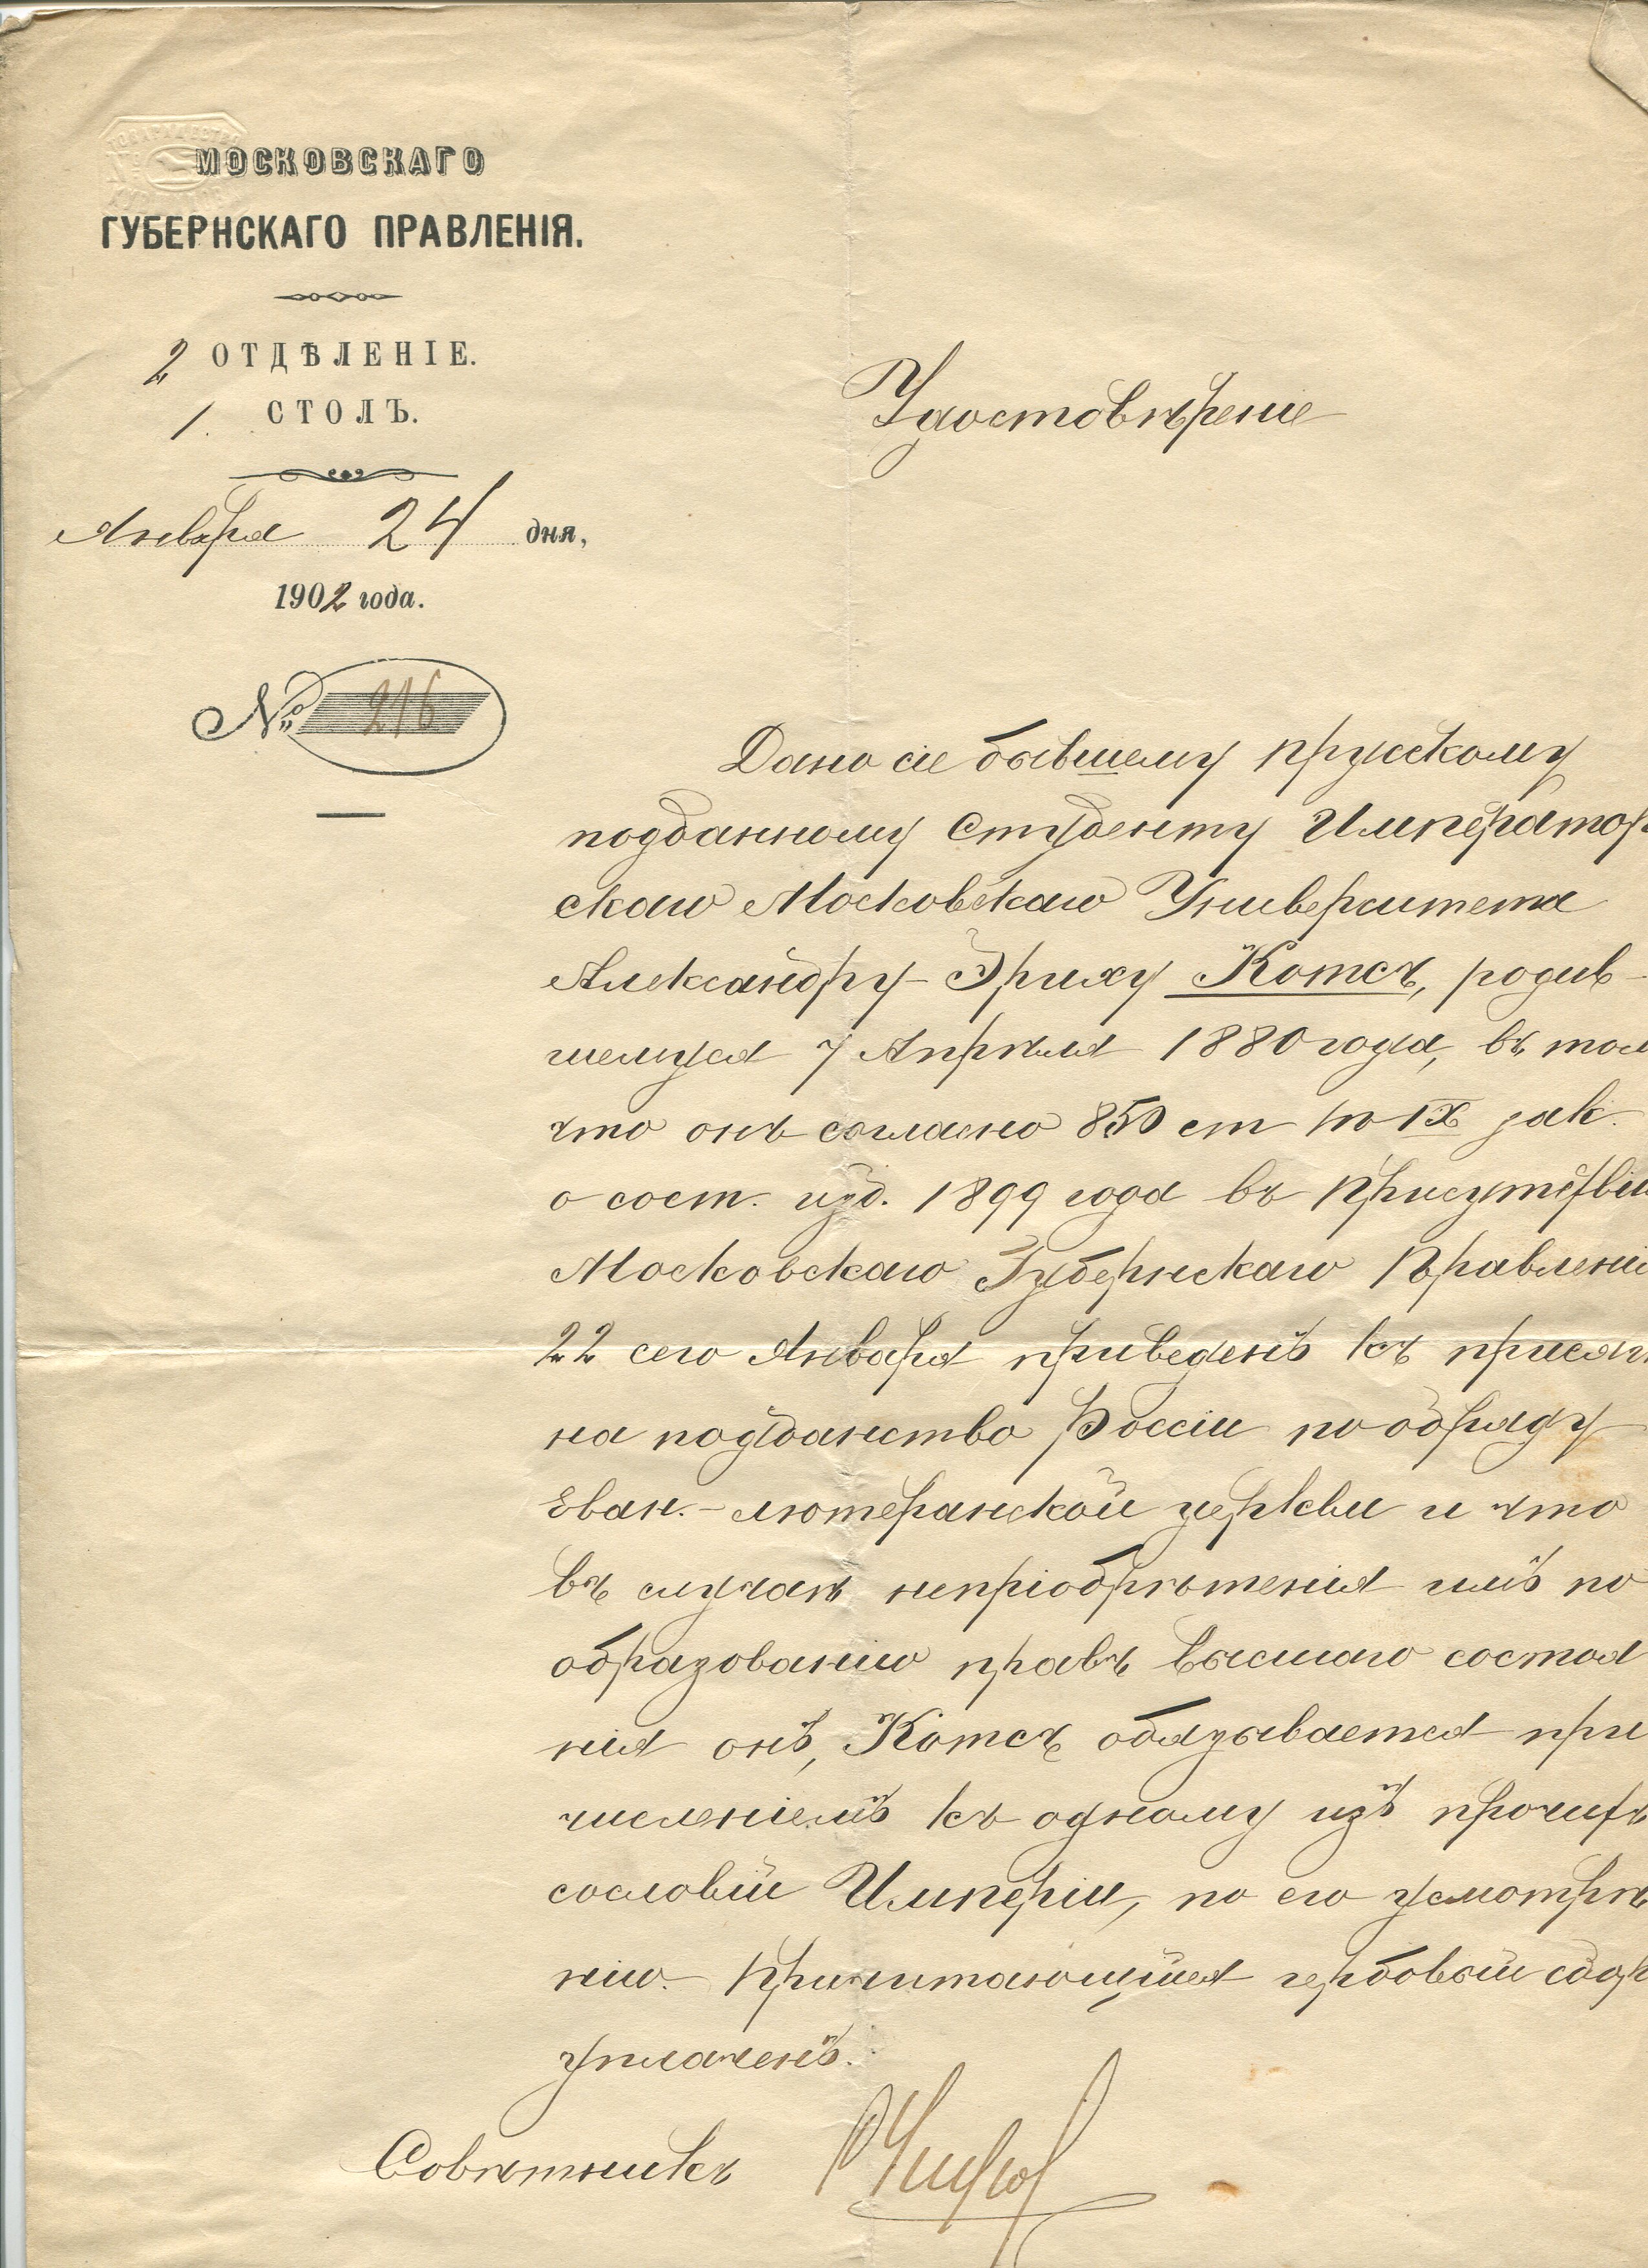 ТОВАРИЩЕСТВО
МОСКОВСКАГО
ГУБЕРНСКАГО ПРАВЛЕНІЯ.
2 ОТДѢЛЕНІЕ.
1. СТОЛЪ.
Января 24 дня,
1902 года.
№ 216
Удостовѣреніе
Дано сіе бывшему прусскому
подданному студенту Император
скаго Московскаго Университета
Александру-Эриху Котсъ, родив-
шемуся 7 Апрѣля 1880 года, въ том
что онъ согласно 850 ст то IX зак.
о сост. изд. 1899 года въ Присутствіи
Московскаго Губернскаго Правлені
22 сего Января приведенъ къ присяг
на подданство Россіи по обряду
Еван.-лютеранской церкви и что
въ случаѣ непріобрѣтенія имъ по
образованію правъ высшаго состоя
нія онъ, Котсъ обязывается при
численіемъ къ одному изъ прочихъ
сословій Имперіи, по его усмотрѣ
нію.- Причитающійся гербовый сбор
уплаченъ.
Совѣтникъ